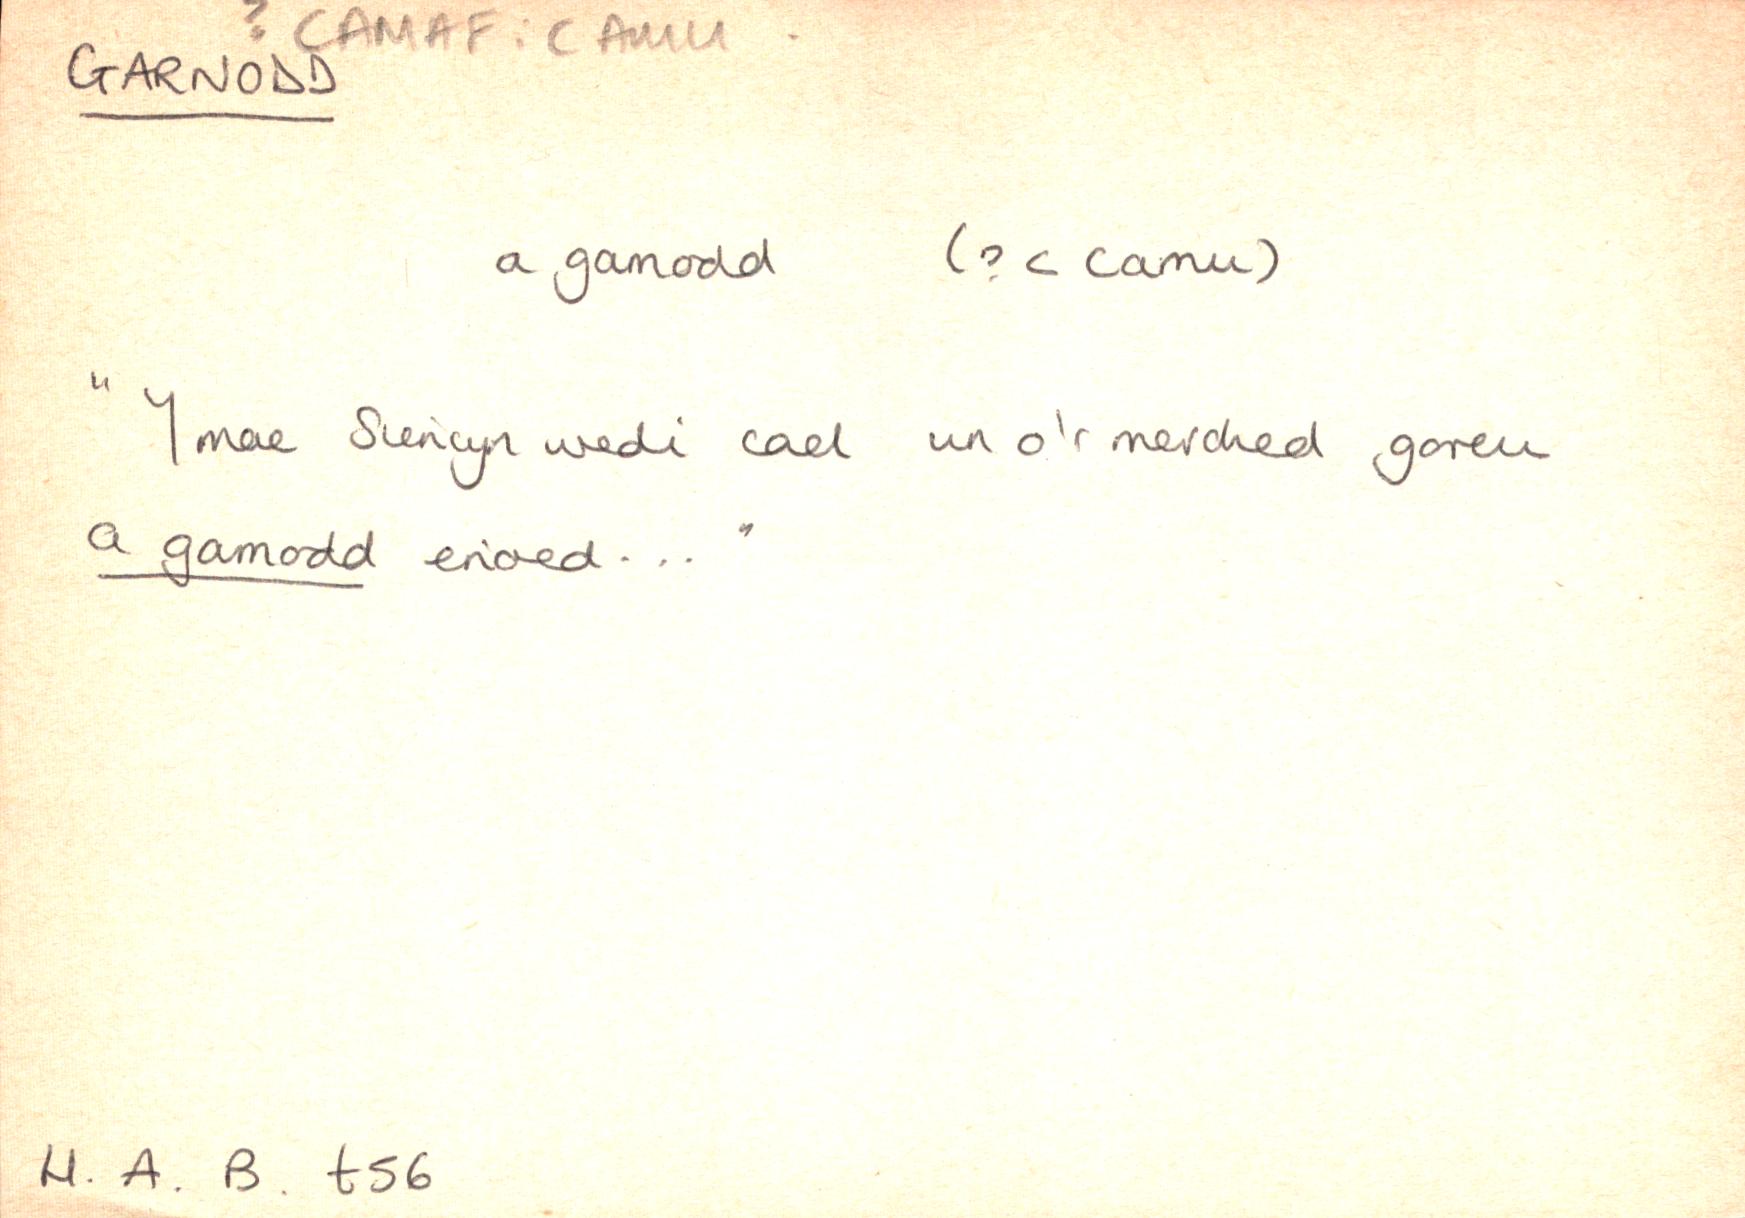 ? CAMAF: CAMU
GARNODD
a gamodd (? < camu)
"Y mae Siencyn wedi cael un o'r merched goreu
a gamodd erioed..."
H. A. B. t56